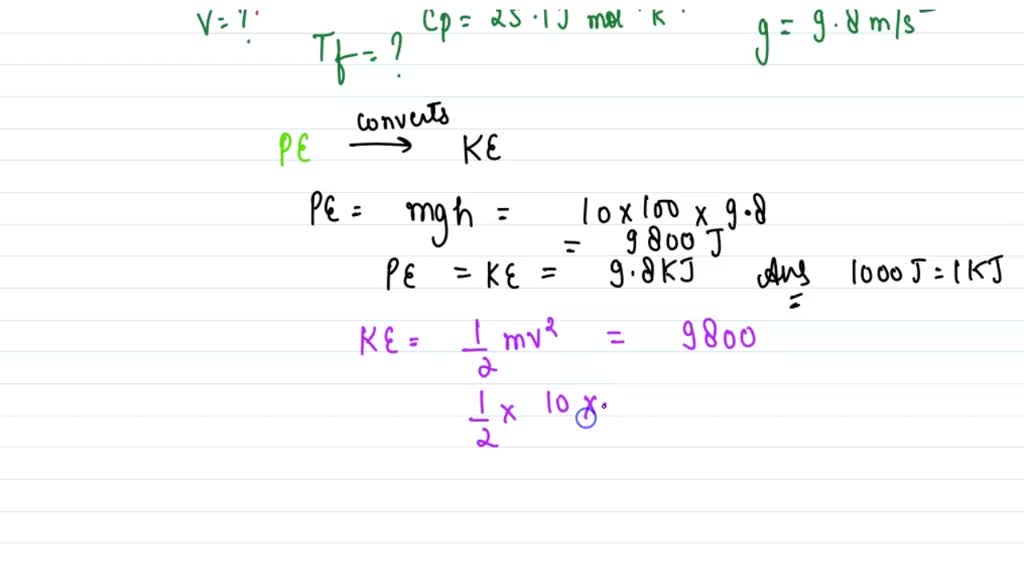 V = ?
Cp = 25.1J mol K
g = 9.8 m/s
Tf = ?
PE converts → KE
PE = mgh = 10 x 100 x 9.8
= 9800 J
PE = KE = 9.8KJ Ans 1000 J = 1 KJ
=
KE = 1/2 mv² = 9800
1/2 x 10 x